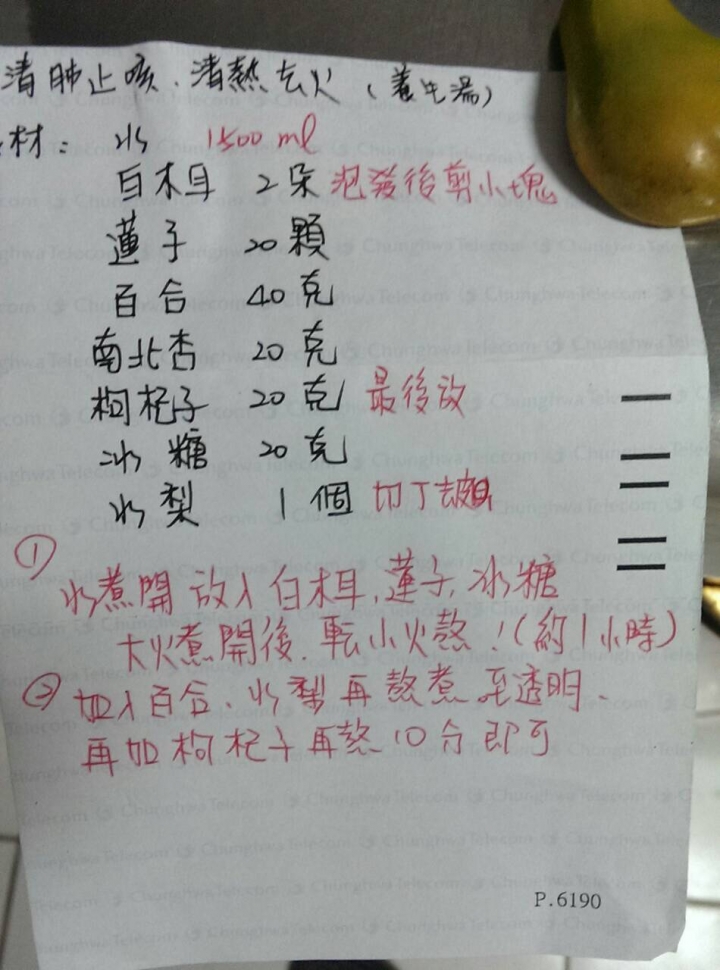 清肺止咳、清熱去火(養生湯)
材: 水 1500 ml
白木耳 2朵 泡發後剪小塊
蓮子 20顆
百合 40克
南北杏 20克
枸杞子 20克 最後放
冰糖 20克
水梨 1個 切丁去皮
① 水煮開放入白木耳、蓮子、冰糖
大火煮開後、転小火熬!(約1小時)
② 加入百合、水梨再熬煮至透明、
再加枸杞子再熬10分即可
P.6190